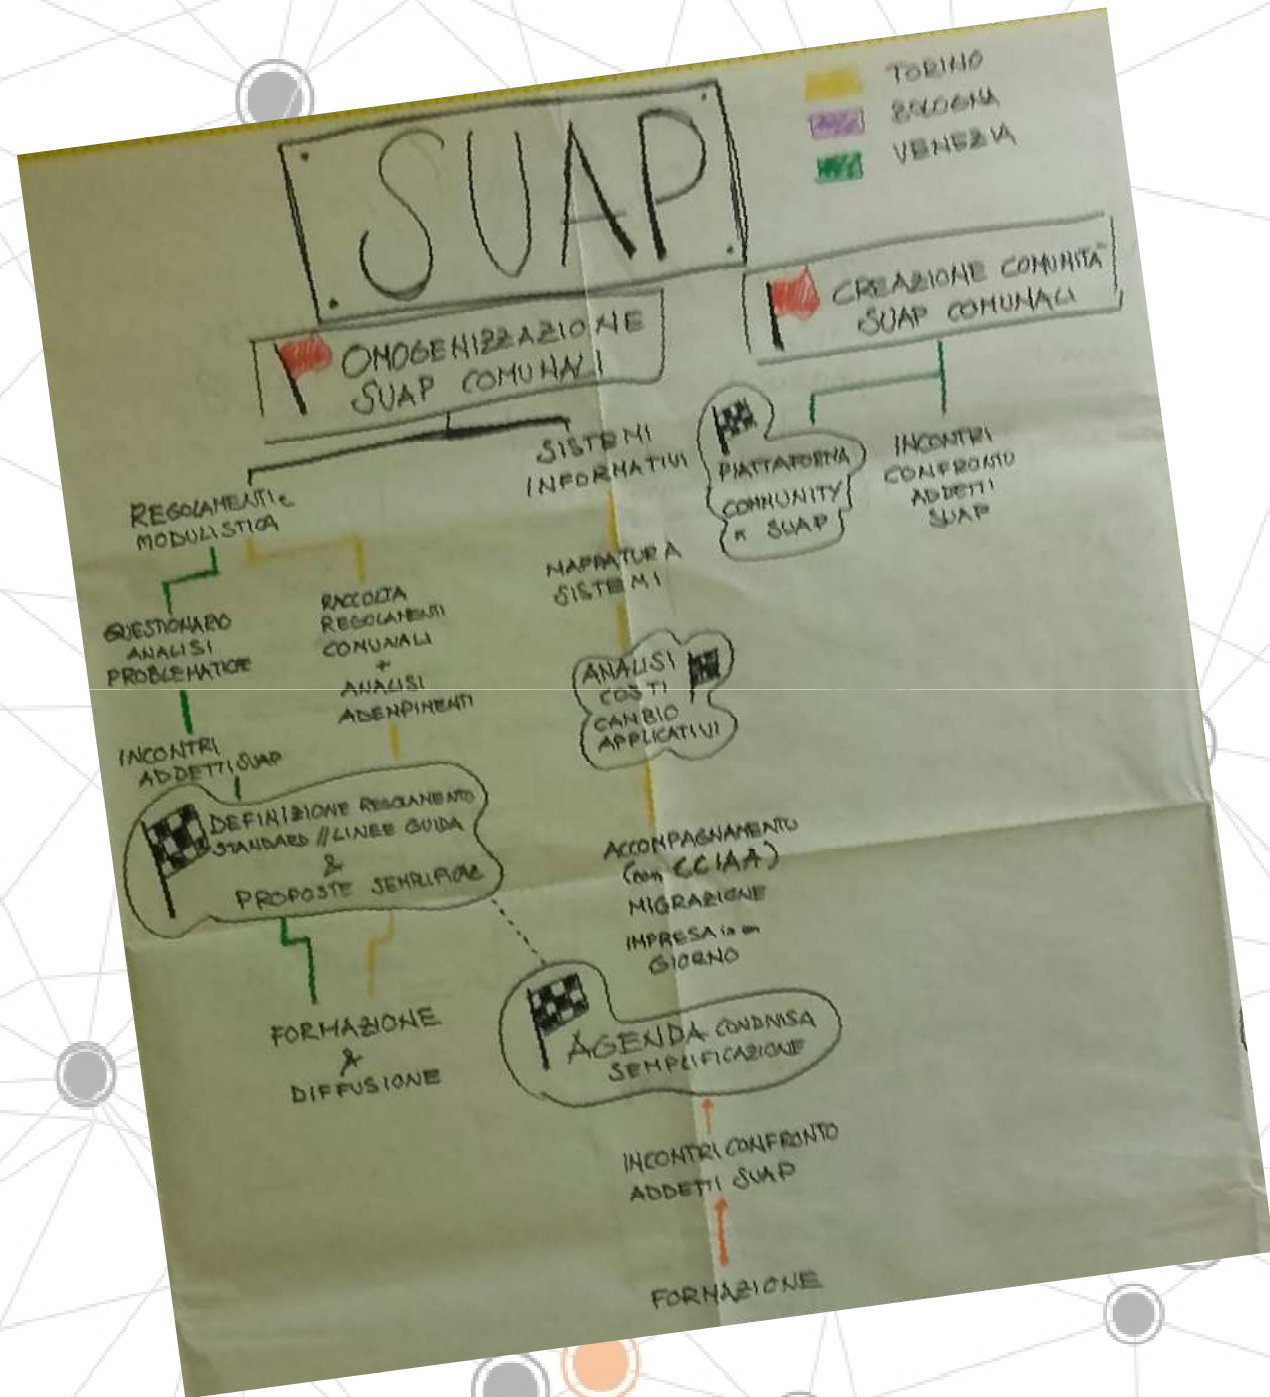 SUAP
TORINO
BOLOGNA
VENEZIA
OMOGENIZZAZIONE
SUAP COMUNALI
CREAZIONE COMUNITA'
SUAP COMUNALI
REGOLAMENTI e
MODULISTICA
SISTEMI
INFORMATIVI
PIATTAFORMA
COMMUNITY
SUAP
INCONTRI
CONFRONTO
ADDETTI
SUAP
QUESTIONARIO
ANALISI
PROBLEMATICHE
RACCOLTA
REGOLAMENTI
COMUNALI
+
ANALISI
ADEMPIMENTI
MAPPATURA
SISTEMI
INCONTRI
ADDETTI SUAP
ANALISI
COSTI
CAMBIO
APPLICATIVI
DEFINIZIONE REGOLAMENTO
STANDARD // LINEE GUIDA
&
PROPOSTE SEMPLIFICAZ
ACCOMPAGNAMENTO
(con CCIAA)
MIGRAZIONE
IMPRESA in un
GIORNO
FORMAZIONE
&
DIFFUSIONE
AGENDA CONDIVISA
SEMPLIFICAZIONE
INCONTRI CONFRONTO
ADDETTI SUAP
FORMAZIONE